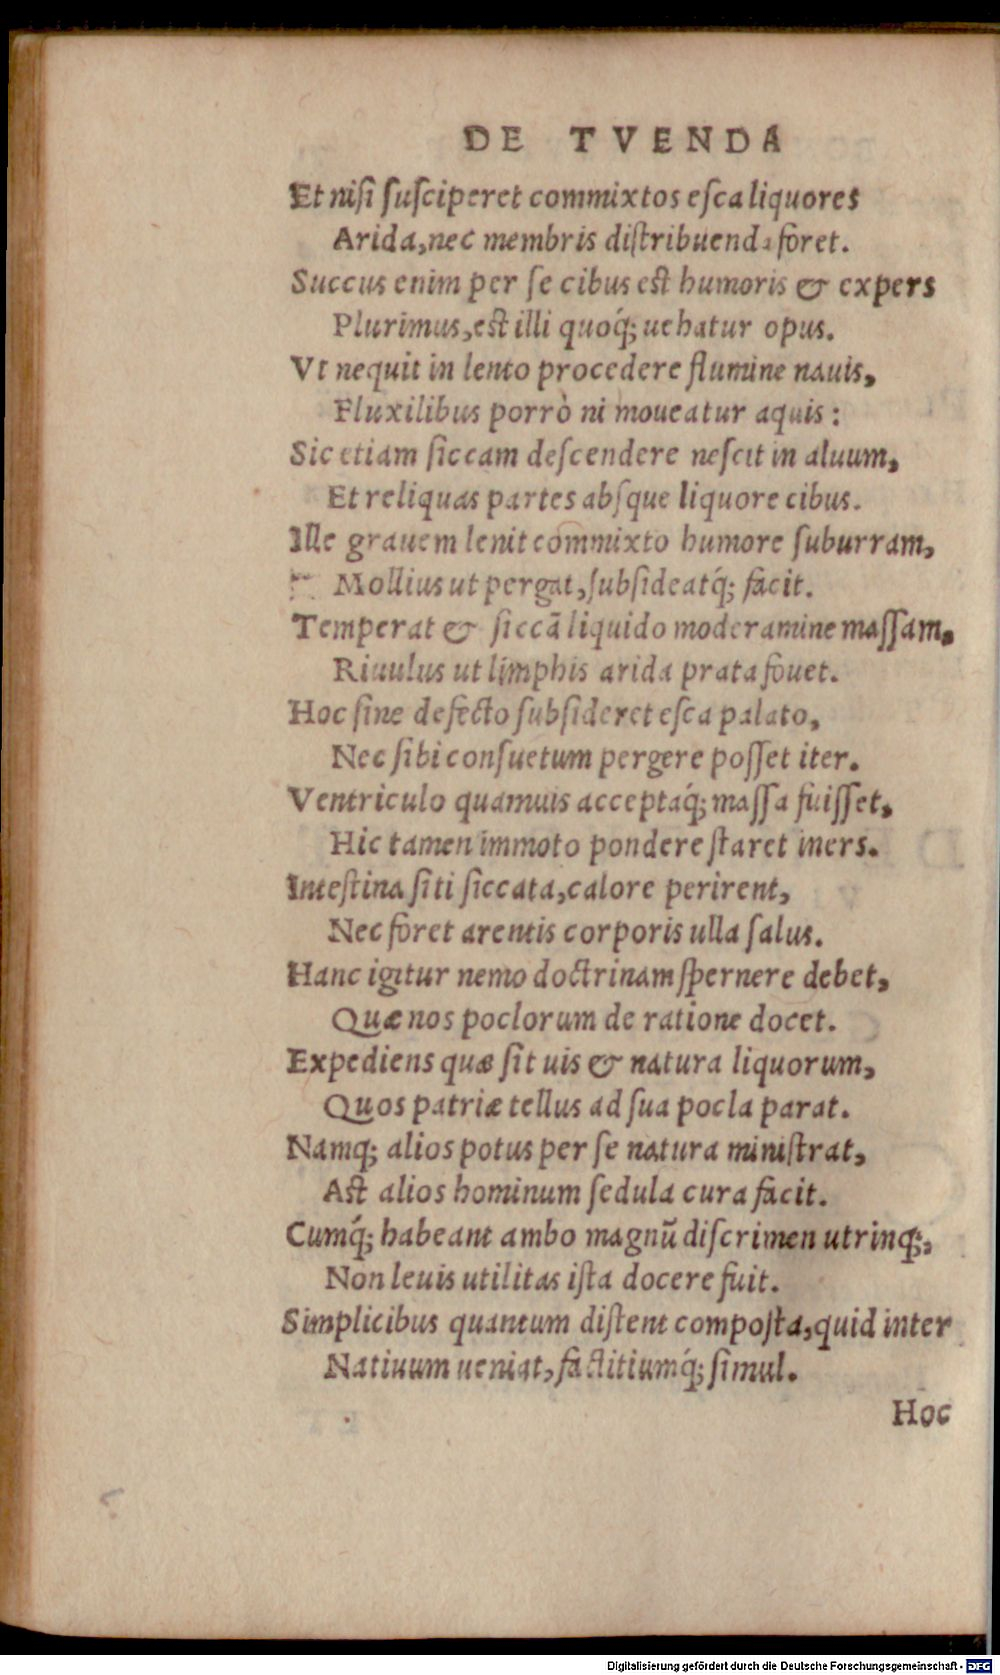 DE TVENDA
Et niſi ſuſciperet commixtos eſca liquores
Arida, nec membris diſtribuenda foret.
Succus enim per ſe cibus eſt humoris & expers
Plurimus, eſt illi quoq́; uehatur opus.
Vt nequit in lento procedere flumine nauis,
Fluxilibus porrò ni moueatur aquis:
Sic etiam ſiccam deſcendere neſcit in aluum,
Et reliquas partes abſque liquore cibus.
Ille grauem lenit commixto humore ſuburram,
Mollius ut pergat, ſubſideatq́; facit.
Temperat & ſiccā liquido moderamine maſſam.
Riuulus ut limphis arida prata fouet.
Hoc ſine defecto ſubſideret eſca palato,
Nec ſibi conſuetum pergere poſſet iter.
Ventriculo quamuis acceptaq́; maſſa fuiſſet,
Hic tamen immoto pondere ſtaret iners.
Inteſtina ſiti ſiccata, calore perirent,
Nec foret arentis corporis ulla ſalus.
Hanc igitur nemo doctrinam ſpernere debet,
Quæ nos poclorum de ratione docet.
Expediens quæ ſit uis & natura liquorum,
Quos patriæ tellus ad ſua pocla parat.
Namq; alios potus per ſe natura miniſtrat,
Aſt alios hominum ſedula cura facit.
Cumq́; habeant ambo magnū diſcrimen utrinq;,
Non leuis utilitas iſta docere fuit.
Simplicibus quantum diſtent compoſta, quid inter
Natiuum ueniat, factitiumq́; ſimul.
Hoc
Digitalisierung gefördert durch die Deutsche Forschungsgemeinschaft - DFG